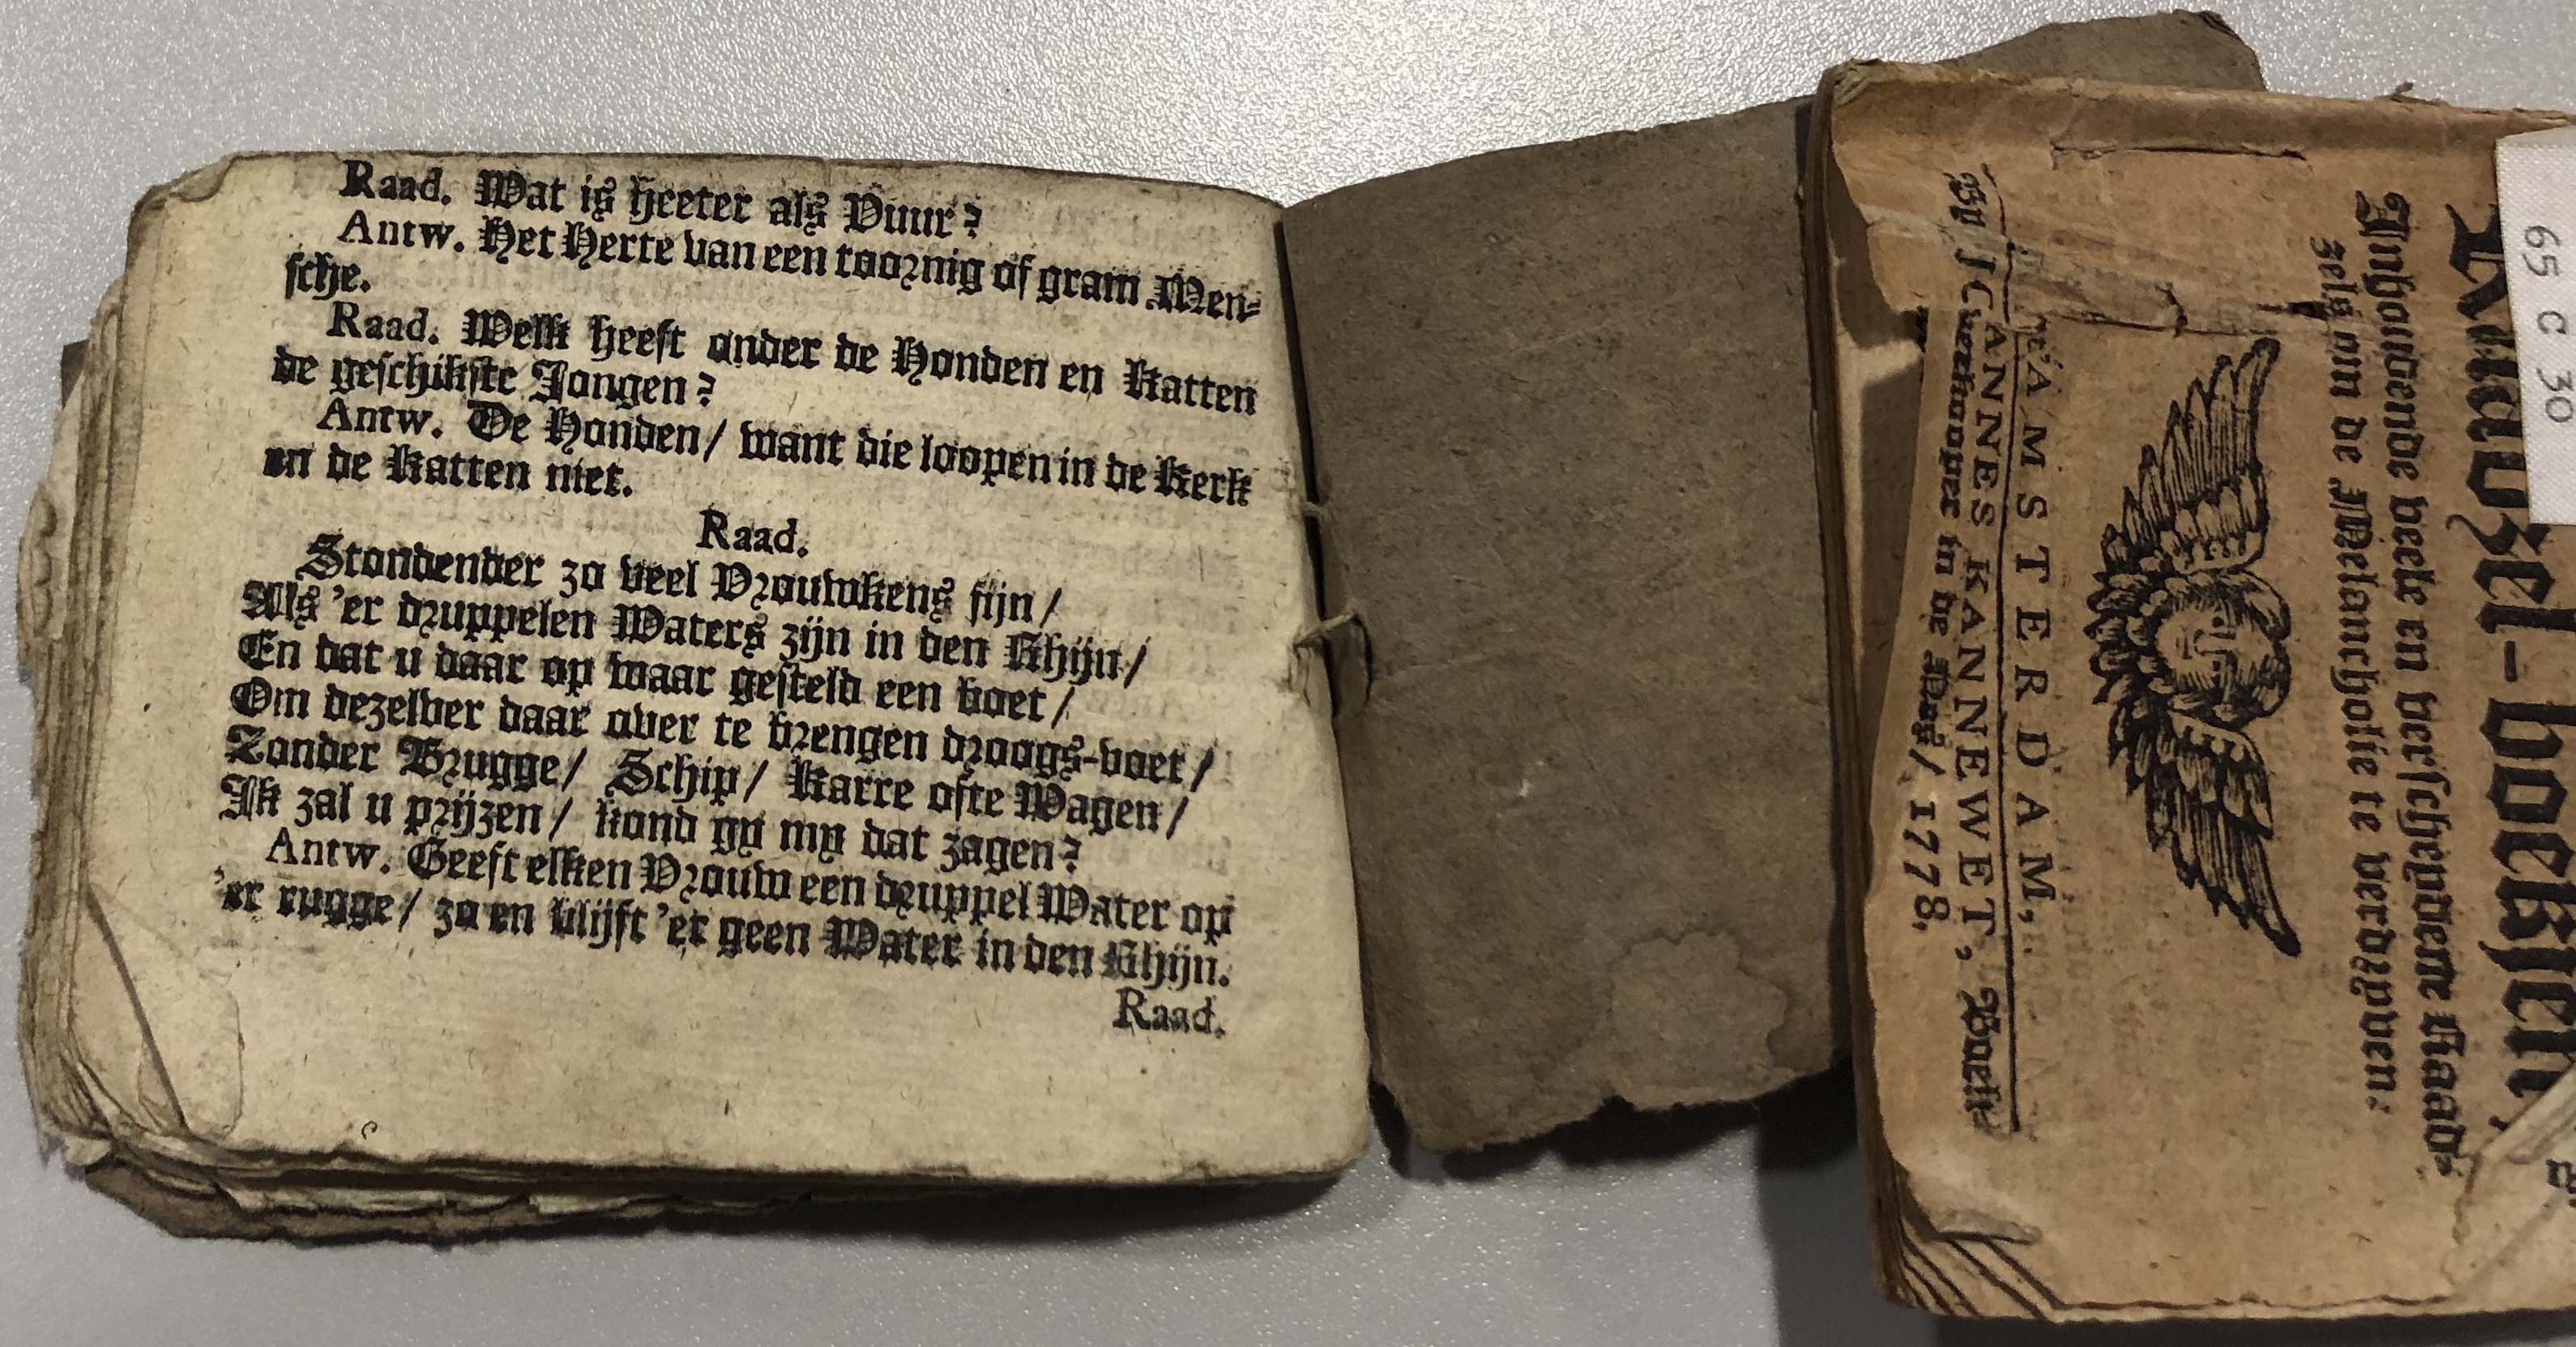 Raad. Wat is heeter als Vuur?
Antw. Het Herte van een toornig of gram Men-
sche.
Raad. Welk heeft onder de Honden en Katten
de geschikste Jongen?
Antw. De Honden/ want die loopen in de Kerk
en de Katten niet.
Raad.
Stondender zo veel Vrouwkens fijn/
Als 'er druppelen Waters zijn in den Rhijn/
En dat u daar op waar gesteld een boet/
Om dezelver daar over te brengen droogs-voet/
Zonder Brugge/ Schip/ Karre ofte Wagen/
Ik zal u prijzen/ kond gy my dat zagen?
Antw. Geeft elken Vrouw een druppel Water op
'er rugge/ zo en blijft 'er geen Water in den Rhijn.
Raad.
Raadzel-boekjen,
Inhoudende veele en verscheydene Raad-
zels om de Melancholie te verdryven.
t'AMSTERDAM,
By JOANNES KANNEWET, Boek
verkooper in de Nes/ 1778.
65 C 30